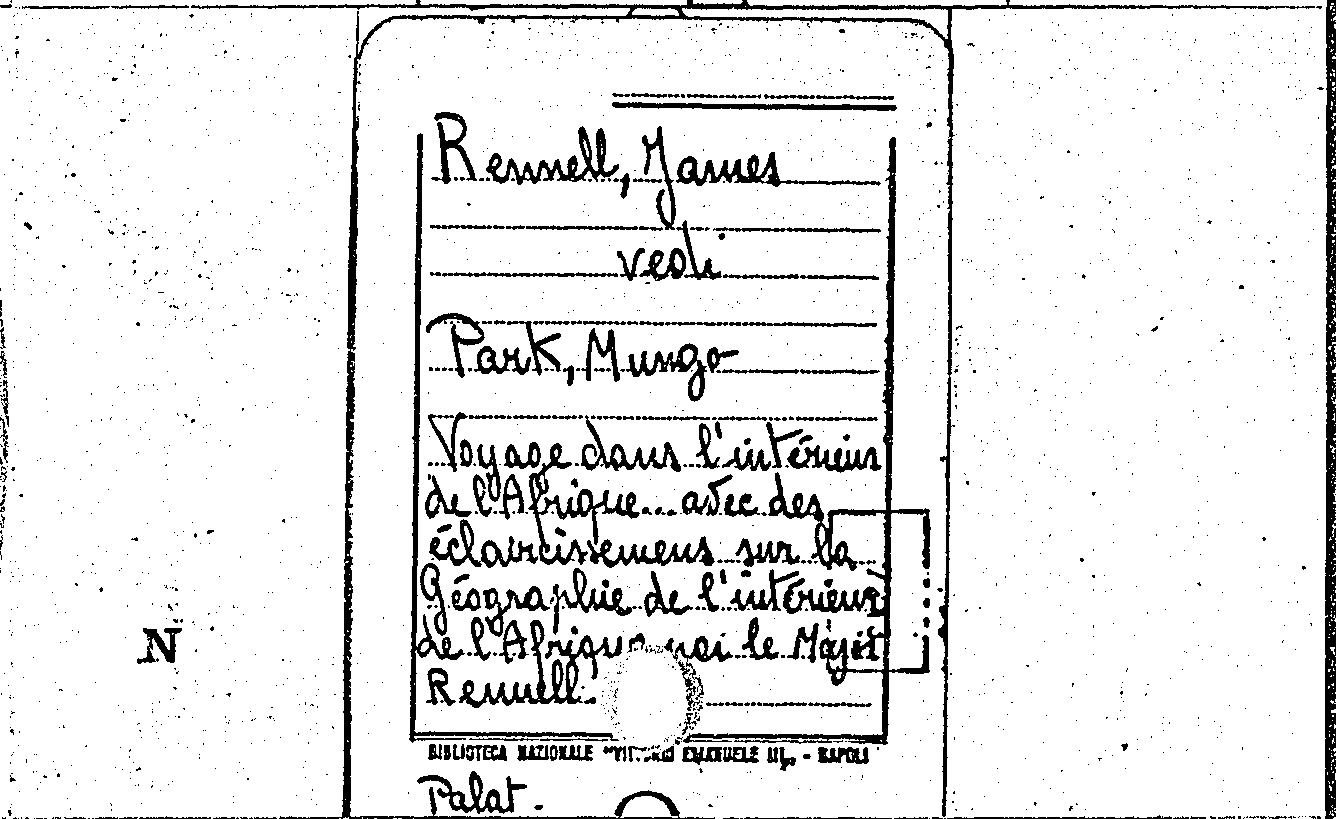 Rennell, James
vedi
Park, Mungo
Voyage dans l'intérieur
de l'Afrique... avec des
éclaircissemens sur la
Géographie de l'intérieur
de l'Afrique le Major
Rennell.
N
BIBLIOTECA NAZIONALE "VITTORIO EMANUELE III" - NAPOLI
Palat.